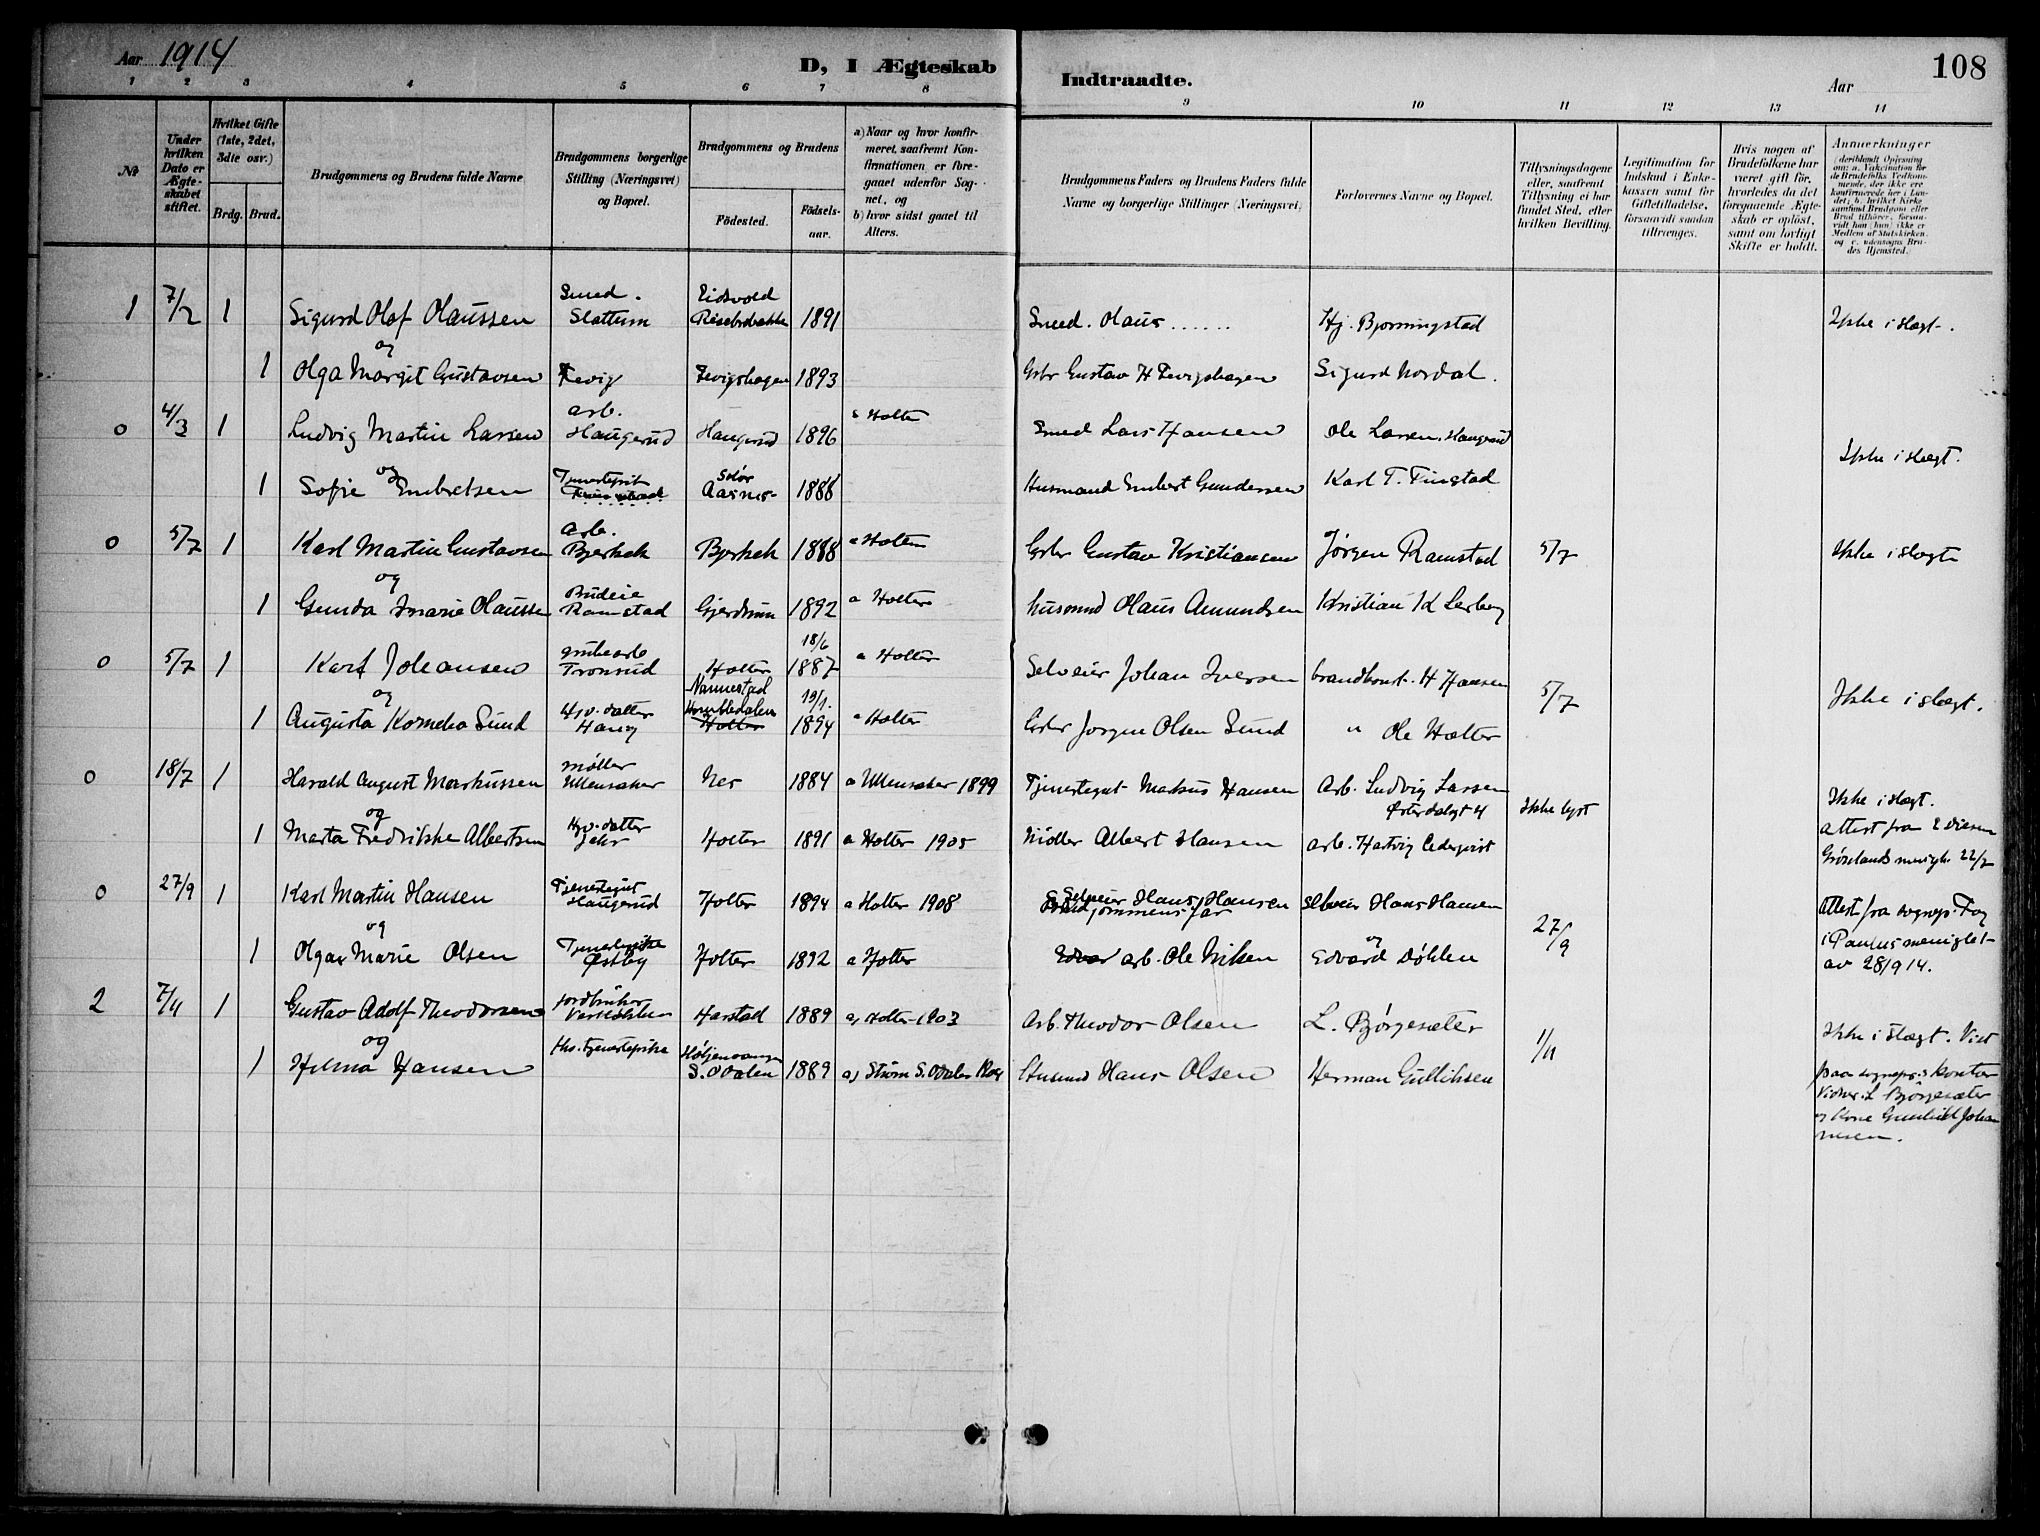 Aar 1914
D, I Ægteskab Indtraadte.
Aar
108
1 2 3 4 5 6 7 8 9 10 11 12 13 14
№
Under hvilken Dato er Ægteskabet stiftet.
Hvilket Gifte (1ste, 2det, 3dte osv.)
Brdg. Brud.
Brudgommens og Brudens fulde Navne
Brudgommens borgerlige Stilling (Næringsvei) og Bopæl.
Brudgommens og Brudens
Födested. Födsels-aar.
a) Naar og hvor konfirmeret, saafremt Konfirmationen er foregaaet udenfor Sognet, og
b) hvor sidst gaaet til Alters.
Brudgommens Faders og Brudens Faders fulde Navne og borgerlige Stillinger (Næringsvei)
Forlovernes Navne og Bopæl.
Tillysningsdagene eller, saafremt Tillysning ei har fundet Sted, efter hvilken Bevilling.
Legitimation for Indskud i Enkekassen samt for Giftetilladelse, forsaavidt saadan tiltrænges.
Hvis nogen af Brudefolkene har været gift för, hvorledes da det foregaaende Ægteskab er oplöst, samt om lovligt Skifte er holdt.
Anmerkninger
(deriblandt Oplysning om: a. Vakcination for de Brudefolks Vedkommende, der ikke ere konfirmerede her i Landet; b. hvilket Kirkesamfund Brudgom eller Brud tilhörer, forsaavidt han (hun) ikke er Medlem af Statskirken, og c. udensogns Brudes Hjemsted.)
1 7/2 1 Sigurd Olaf Olaussen Smed. Slattum Eidsvold 1891 Smed. Olaus ...... Hj. Bjorningstad Ikke i slægt.
og
1 Olga Margit Gustavsen 1893 Gbr Gustav H Sigurd Nordal.
0 4/3 1 Ludvig Martin Larsen arb. Haugerud Haugerud 1896 Holter Smed Lars Hansen Ole Larsen, Haugerud Ikke i slægt.
og
1 Sofie Embretsen Solør Aasnes 1888 Husmand Embret Gundersen Karl T. Finstad
0 5/7 1 Karl Martin Gustavsen arb. Bjerkek Bjerkek 1888 a Holter Gbr Gustav Kristiansen Jørgen Ramstad 5/7 Ikke i slægt
og
1 Gunda Marie Olaussen Budeie Ramstad Gjerdrum 1892 a Holter husmand Olaus Amundsen Kristian K Lerberg
0 5/7 1 Karl Johansen Tronsud Holter 18/6 1887 a Holter Selveier Johan Iversen brandkonst. H Hansen 5/7 Ikke i slægt.
og
1 Augusta Kornelia Sund Hsv. datter Haug Nannestad Holter 19/1. 1894 a Holter Gbr Jørgen Olsen Sund " Ole Holter
0 18/7 1 Harald August Markussen møller Ullensaker Nes 1884 a Ullensaker 1899 Tjenestegut Markus Hansen Arb. Ludvig Larsen Østerdalsgt 4 Ikke lyst Ikke i slægt.
og
1 Marta Fredrikke Albertsen Hsv. datter Jahr Holter 1891 a Holter 1905 Møller Albert Hansen arb. Hartvig Cederqvist attest fra Grønlands menigh. 22/7
0 27/9 1 Karl Martin Hansen Tjenestegut Haugerud Holter 1894 a Holter 1908 Selveier Hans Hansen Brudgommens far selveier Hans Hansen 27/9 Attest fra sognepr.
og
1 Olga Marie Olsen Tjenestepike Østby Holter 1892 a Holter arb. Ole Nilsen og Edvard Døhlen i Paulus menighet av 28/9 14.
2 7/11 1 Gustav Adolf Theodorsen Jordbruker Harstad 1889 a) Holter 1903 Arb. Theodor Olsen L. Bjørgesæter 1/11 Ikke i slægt. Viet
og
1 Hilma Hansen Hus. tjenestepike S. Odalen 1889 a) Strøm S. Odalen Husmd Hans Olsen Herman Gullihsen paa sognepr.s kontor
Vidner: L Bjørgesæter
og Kone Gunhild Johannesen.